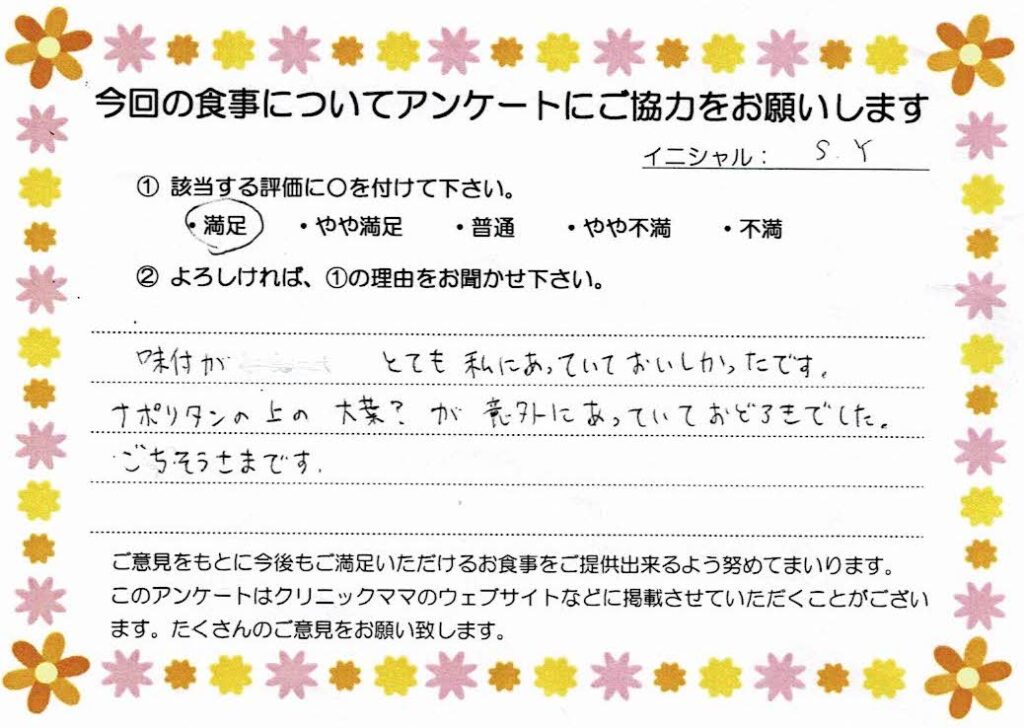 今回の食事についてアンケートにご協力をお願いします
イニシャル： S.Y
① 該当する評価に○を付けて下さい。
・満足 ・やや満足 ・普通 ・やや不満 ・不満
② よろしければ、①の理由をお聞かせ下さい。
味付が とても 私にあっていておいしかったです。
ナポリタンの上の 大葉？が 意外にあっていておどろきでした。
ごちそうさまです.
ご意見をもとに今後もご満足いただけるお食事をご提供出来るよう努めてまいります。
このアンケートはクリニックママのウェブサイトなどに掲載させていただくことがござい
ます。たくさんのご意見をお願い致します。